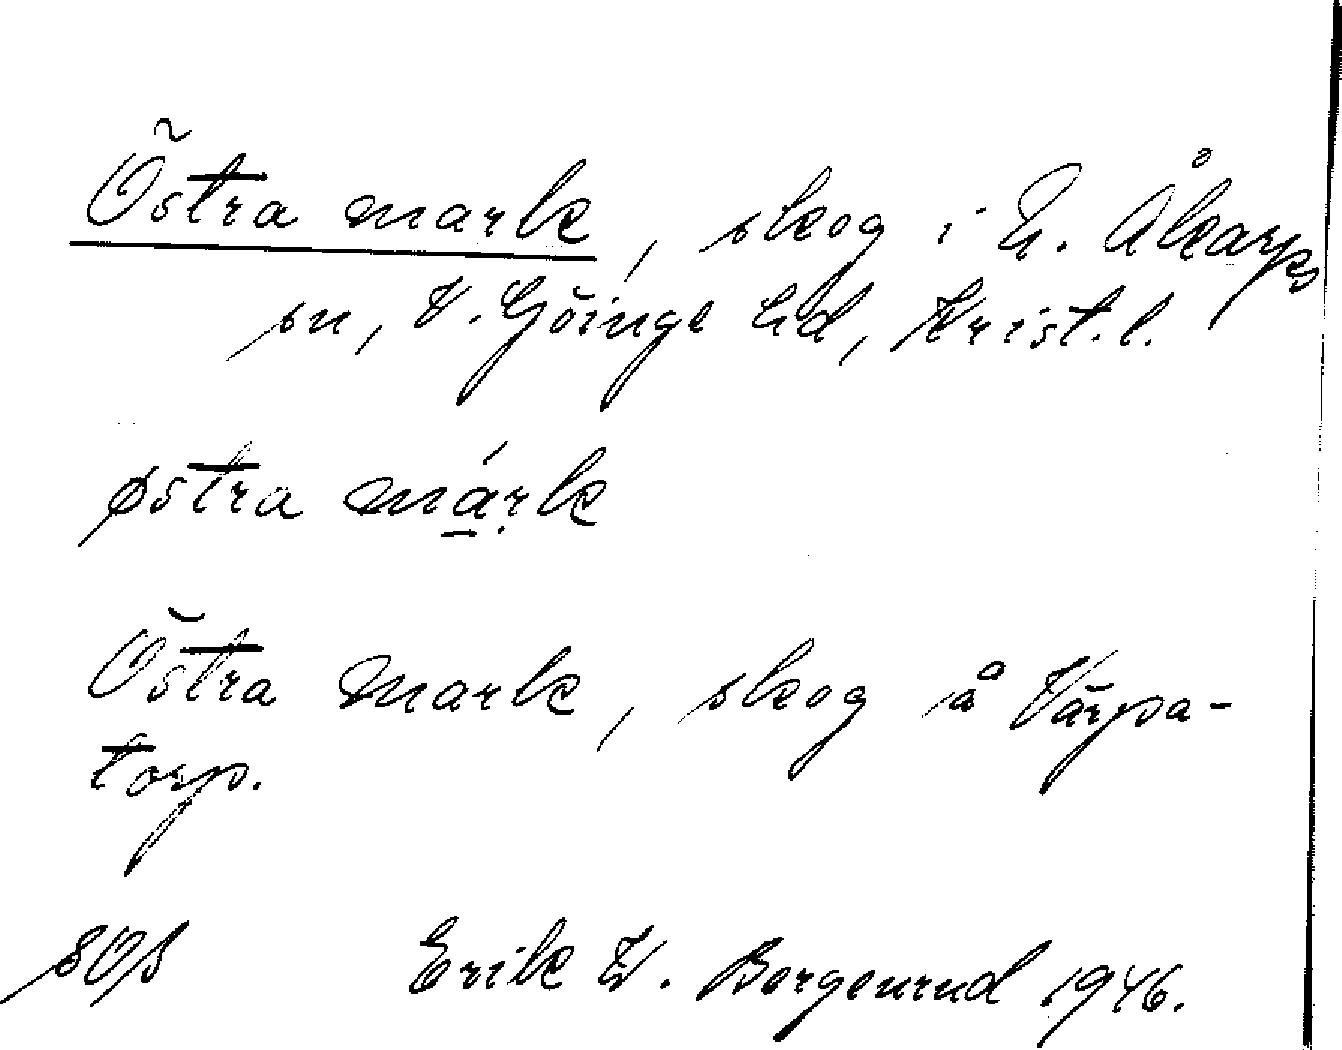 Östra mark, skog i N. Åkarps
sn, V. Göinge hd, Krist.l.
østra márk
Östra Mark, skog å Värpa-
torp.
SOS Erik W. Bergenrud 1946.